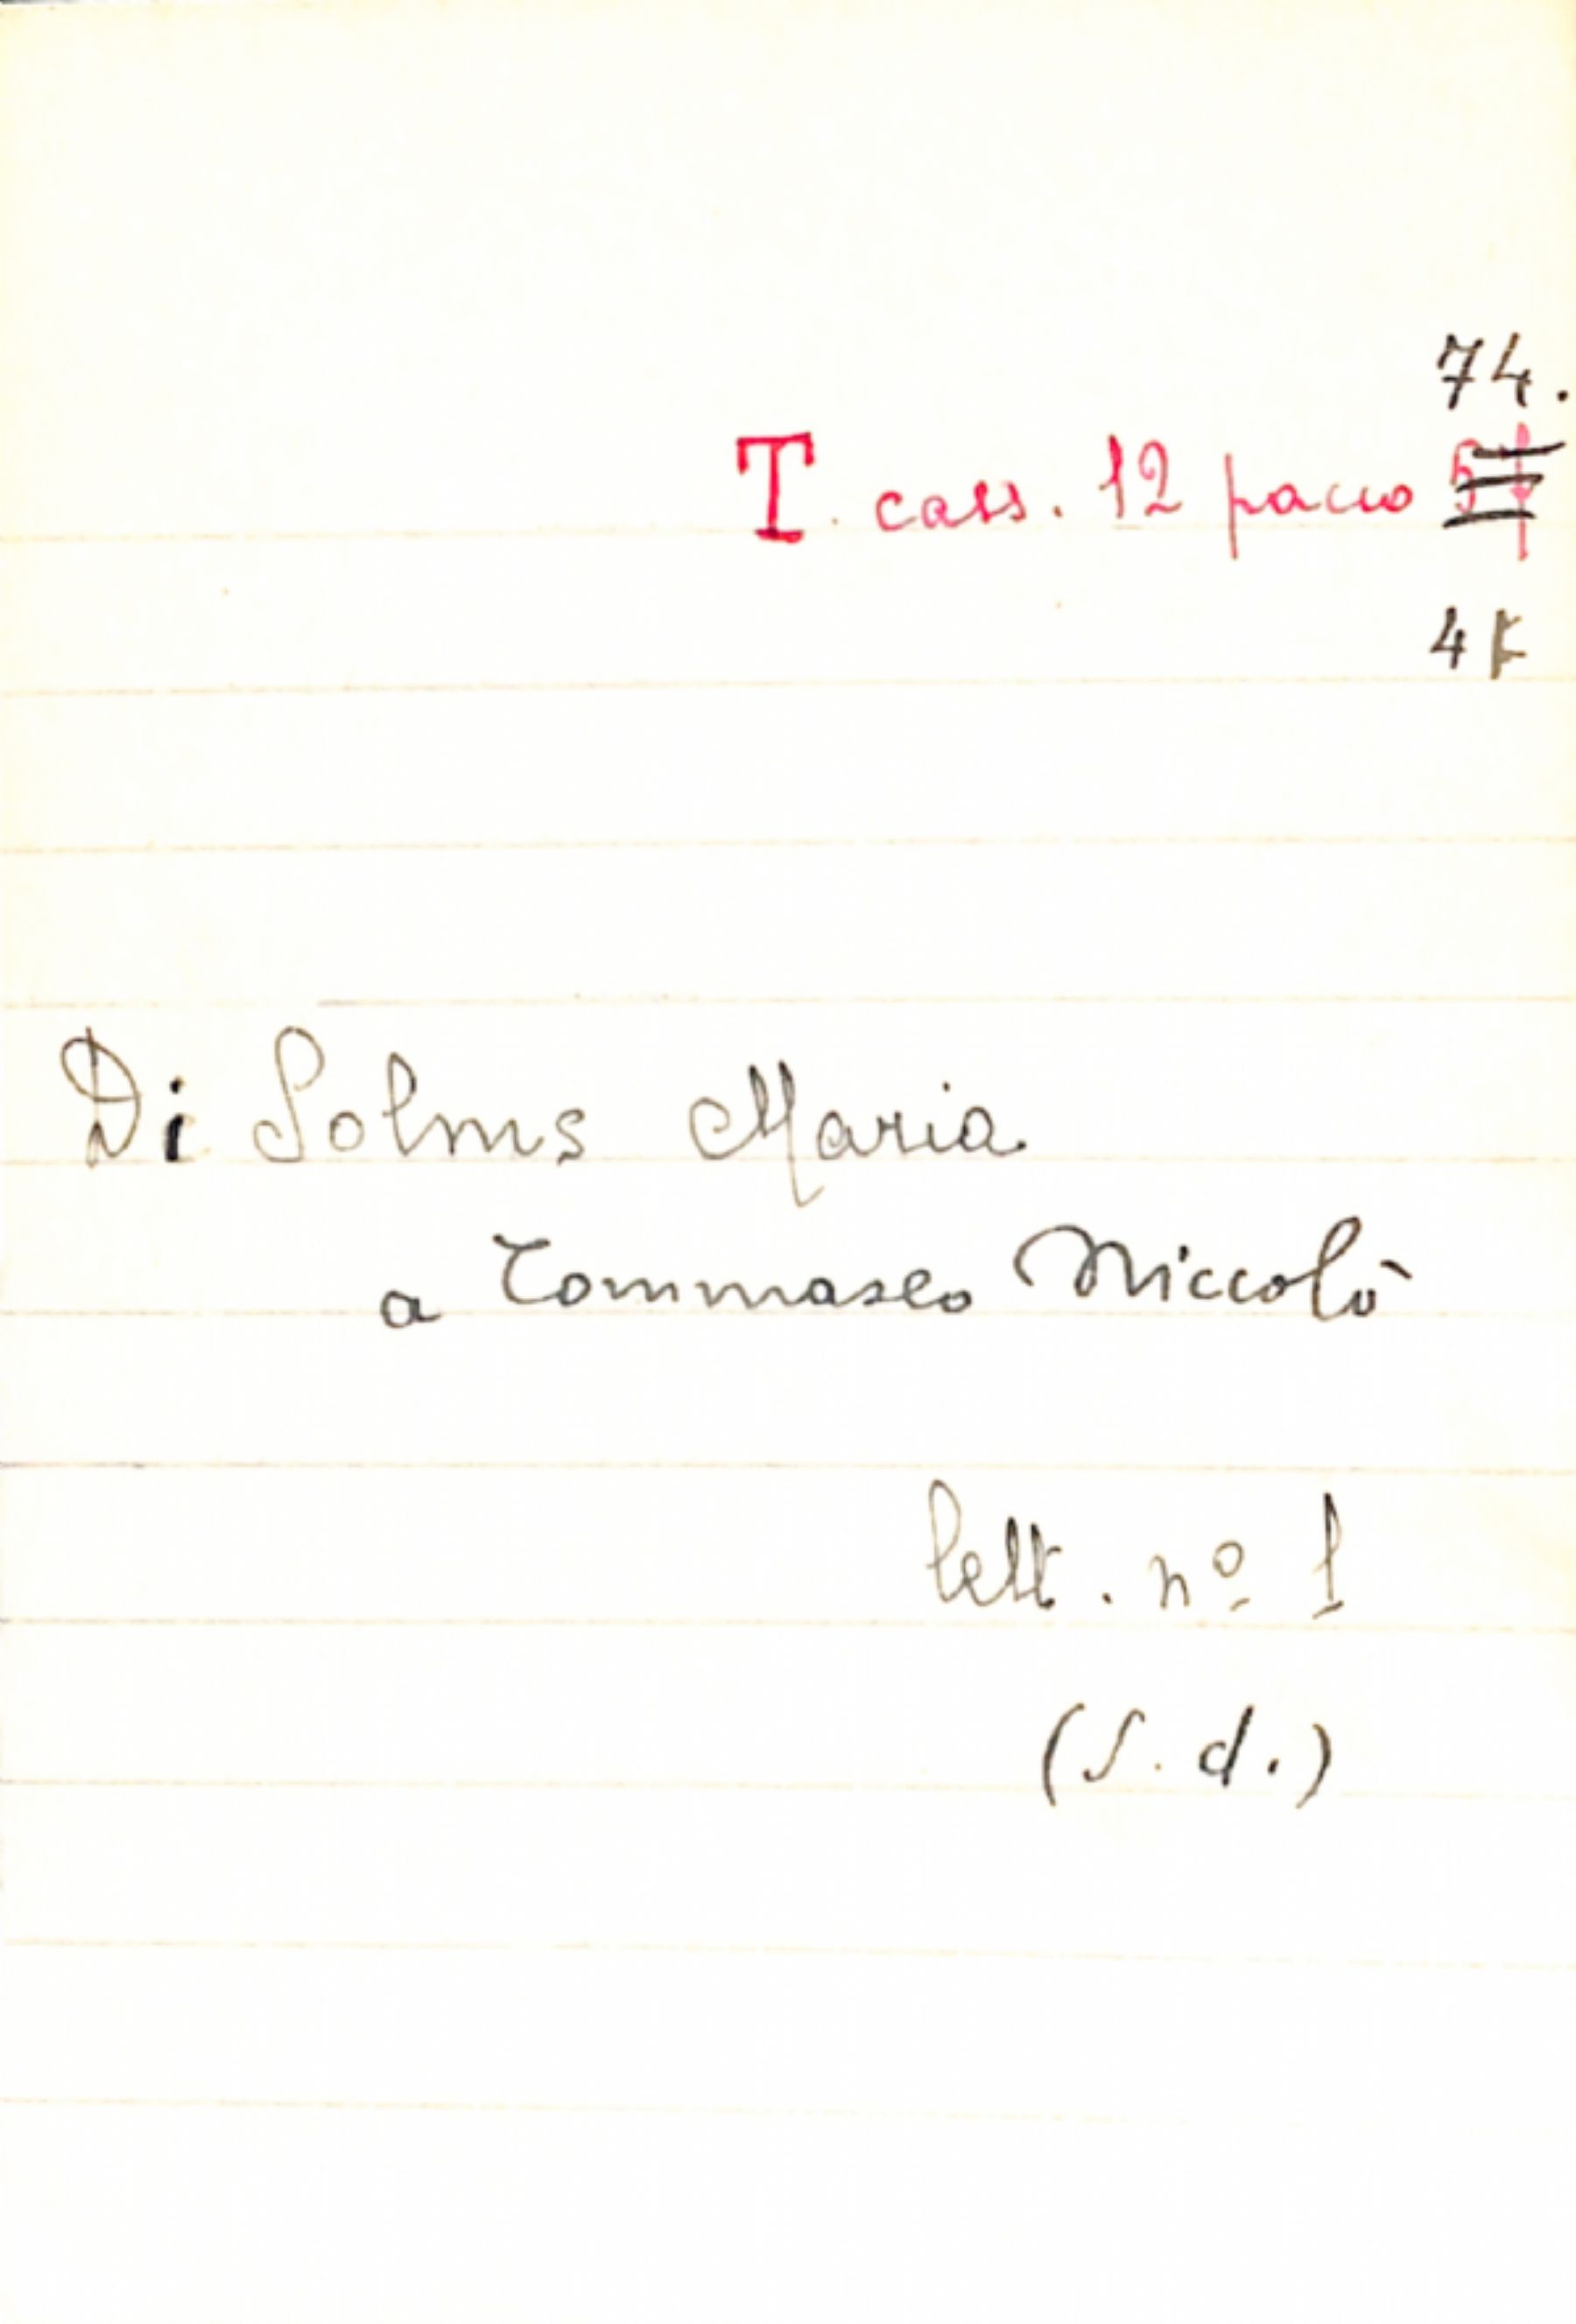 74.
T. cass. 12 pacco
4
Di Solms Maria
a Tommaseo Niccolò
lett. nº 1
(S. d.)